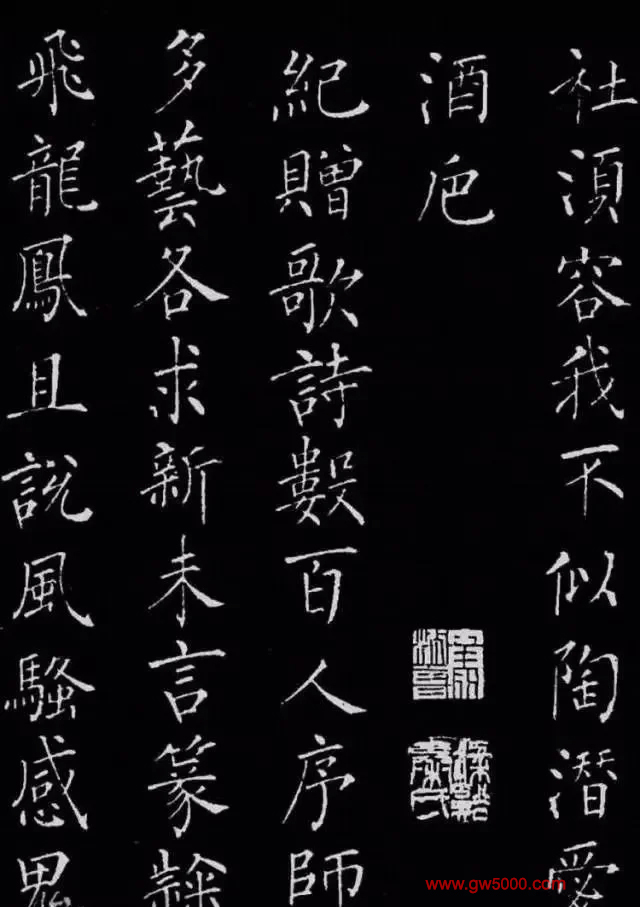 社湏容我不似陶潛愛
酒卮
紀贈歌詩數百人序師
多藝各求新未言篆隸
飛龍鳳且說風騷感鬼
www.gw5000.com